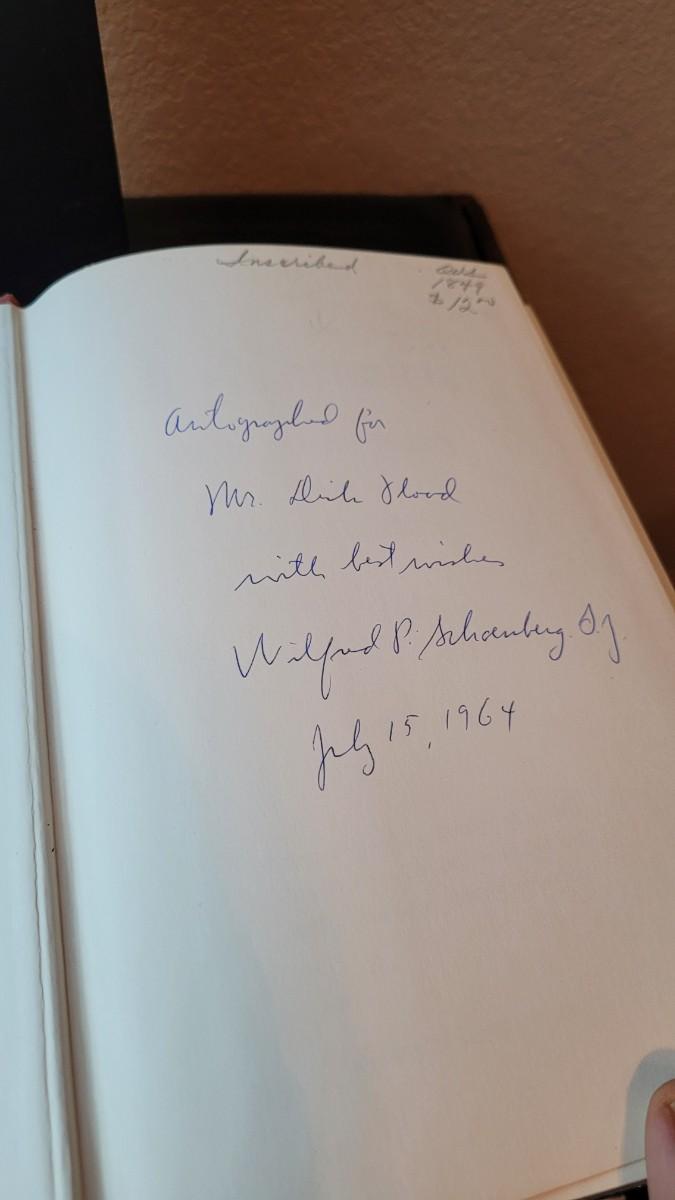 Inscribed
1849
$12.00
Autographed for
Mr. Dick Flood
with best wishes
Wilfred P. Schoenberg. S.J.
July 15, 1964